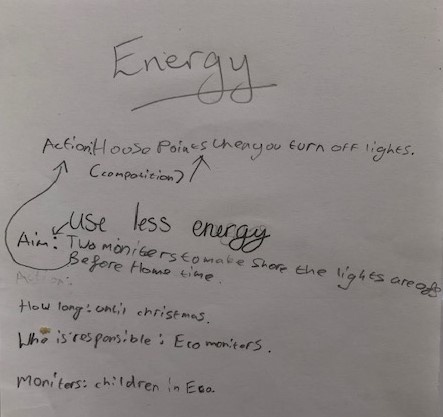 Energy
Action: House Points when you turn off lights.
(compotition)
Use less energy
Aim: Two moniters to make shore the lights are off
Before Home time.
Action:
How long: until christmas.
Who is responsible: Eco moniters.
Moniters: children in Eco.